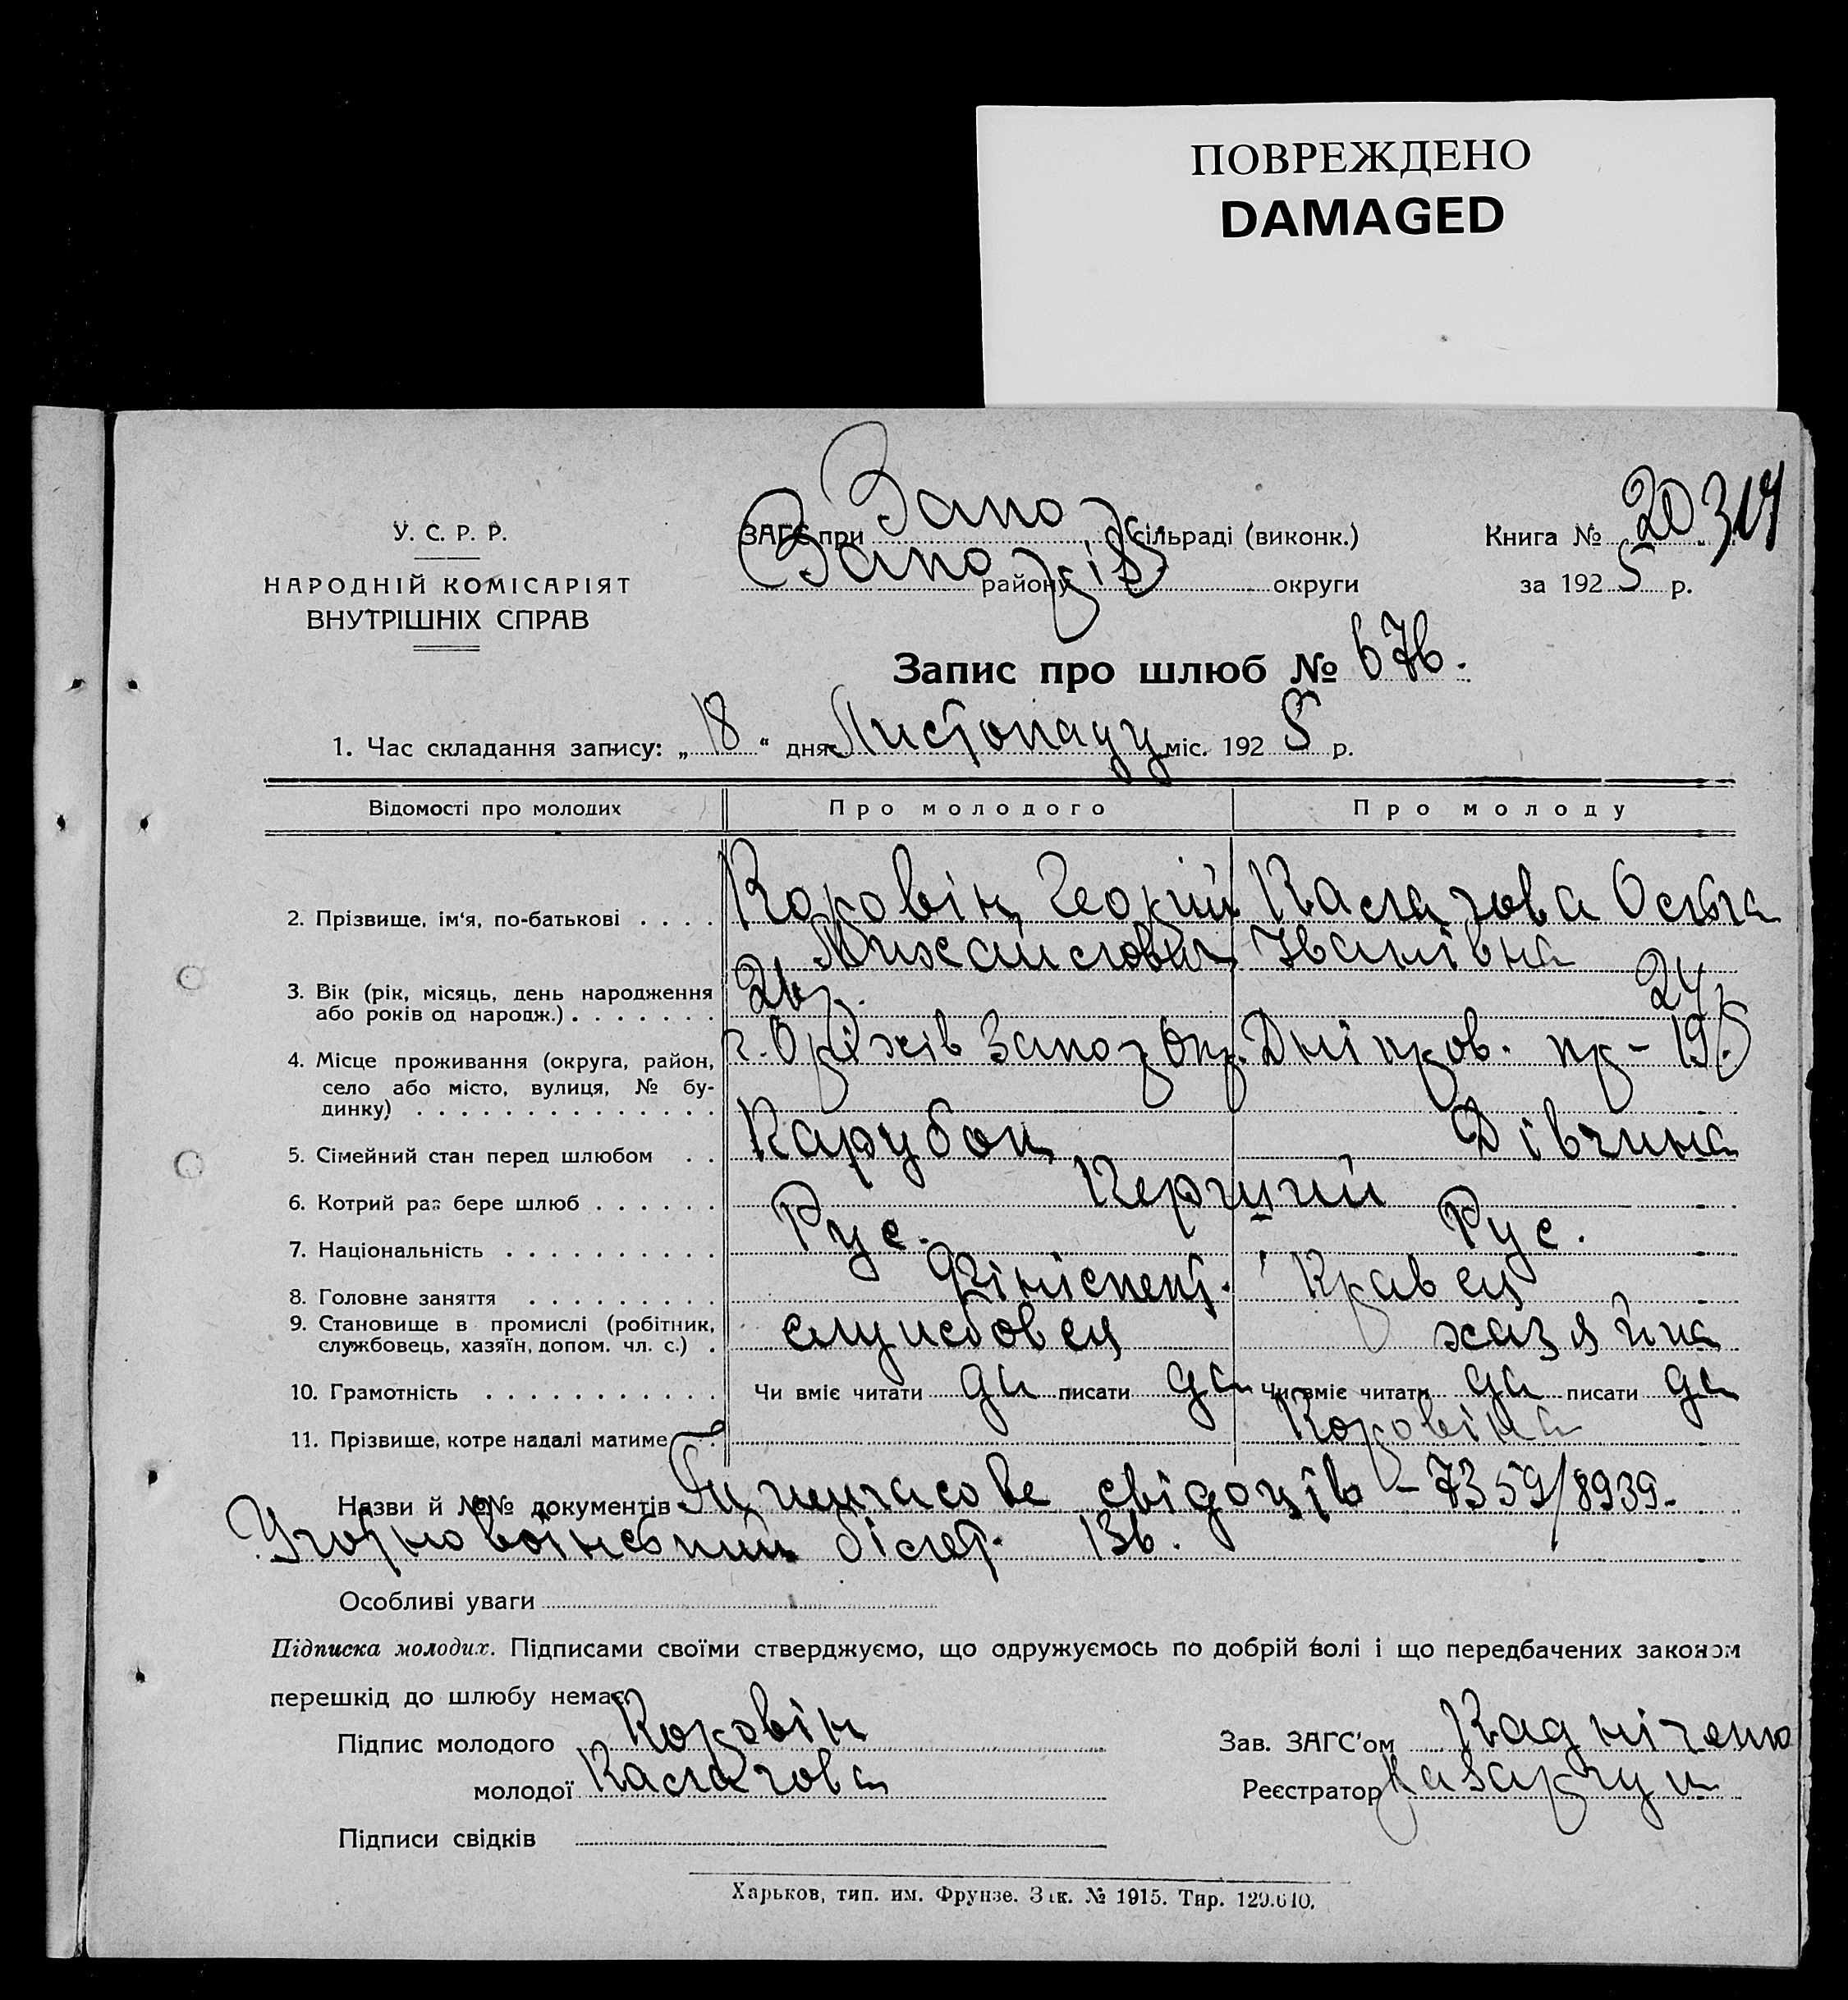 ПОВРЕЖДЕНО
DAMAGED
У. С. Р. Р.
НАРОДНІЙ КОМІСАРІЯТ
ВНУТРІШНІХ СПРАВ
ЗАГС при Запоз сільраді (виконк.)
району округи
Книга № 20
за 1925 р.
Запис про шлюб № 676.
1. Час складання запису: „18“ дня Листопаду міс. 1925 р.
Відомості про молодих Про молодого Про молоду
2. Прізвище, ім'я, по-батькові . . . . Коровін Георгий Калачова Ольга
Михайлович Іванівна
3. Вік (рік, місяць, день народження
або років од народж.) . . . . . . . 26 р. 24
4. Місце проживання (округа, район, г. Оріхів Запоз Окр. Дніпров. 19
село або місто, вулиця, № бу-
динку) . . . . . . . . . . . . . .
5. Сімейний стан перед шлюбом . . Парубок Дівчина
6. Котрий раз бере шлюб . . . . . . Перший
7. Національність . . . . . . . . . . Рус. Рус.
8. Головне заняття . . . . . . . . . Фінінспект. Кравец
9. Становище в промислі (робітник,
службовець, хазяїн, допом. чл. с.) . службовец хазяйка
10. Грамотність . . . . . . . . . . . Чи вміє читати да писати да Чи вміє читати да писати да
11. Прізвище, котре надалі матиме . . Коровіна
Назви й №№ документів Тимчасове свідоцтв – 7359/8939.
білет. 136.
Особливі уваги
Підписка молодих. Підписами своїми стверджуємо, що одружуємось по добрій волі і що передбачених законом
перешкід до шлюбу немає.
Підпис молодого Коровін
молодої Калачова
Підписи свідків
Зав. ЗАГС'ом
Реєстратор
Харьков, тип. им. Фрунзе. Зак. № 1915. Тир. 120.610.